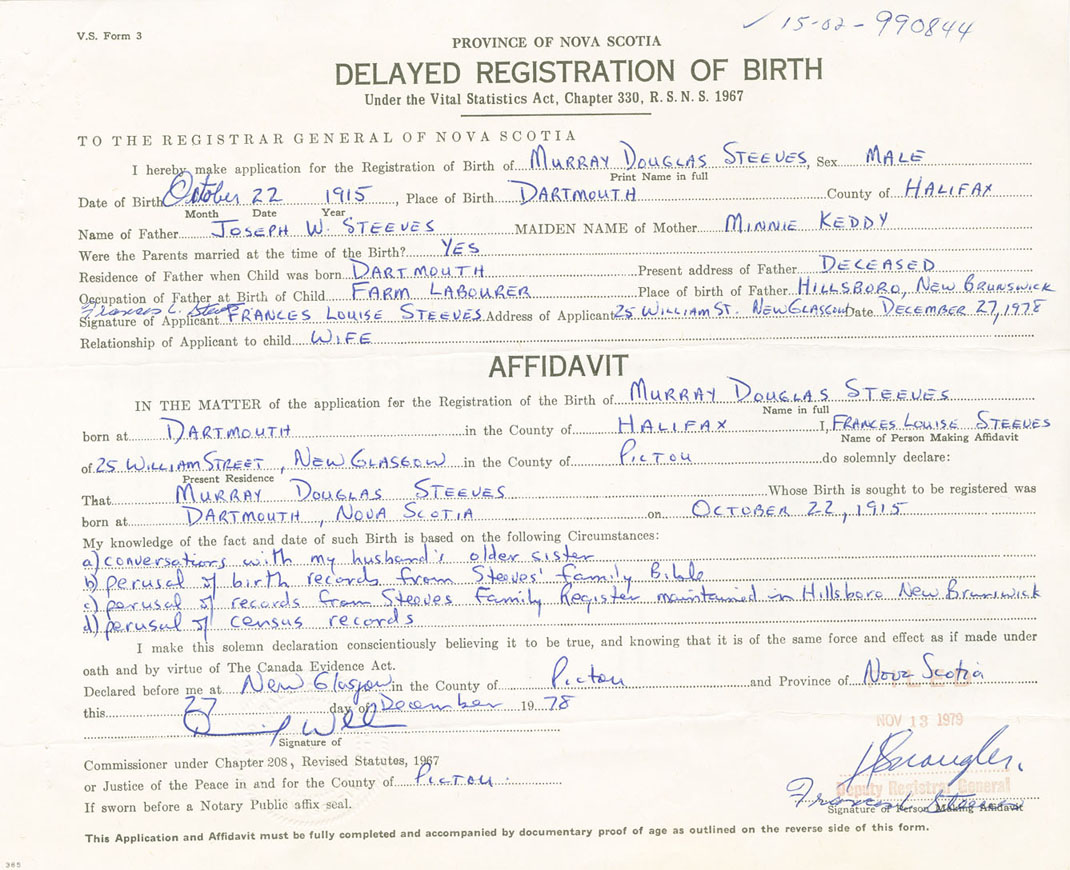 V.S. Form 3
✓ 15-02-990844
PROVINCE OF NOVA SCOTIA
DELAYED REGISTRATION OF BIRTH
Under the Vital Statistics Act, Chapter 330, R. S. N. S. 1967
TO THE REGISTRAR GENERAL OF NOVA SCOTIA
I hereby make application for the Registration of Birth of MURRAY DOUGLAS STEEVES, Sex MALE
Print Name in full
Date of Birth October 22 1915, Place of Birth DARTMOUTH County of HALIFAX
Month Date Year
Name of Father JOSEPH W. STEEVES MAIDEN NAME of Mother MINNIE KEDDY
Were the Parents married at the time of the Birth? YES
Residence of Father when Child was born DARTMOUTH Present address of Father DECEASED
Occupation of Father at Birth of Child FARM LABOURER Place of birth of Father HILLSBORO, NEW BRUNSWICK
Frances L. Steeves
Signature of Applicant FRANCES LOUISE STEEVES Address of Applicant 25 WILLIAM ST. NEW GLASGOW Date DECEMBER 27, 1978
Relationship of Applicant to child WIFE
AFFIDAVIT
IN THE MATTER of the application for the Registration of the Birth of MURRAY DOUGLAS STEEVES
Name in full
born at DARTMOUTH in the County of HALIFAX I, FRANCES LOUISE STEEVES
Name of Person Making Affidavit
of 25 WILLIAM STREET, NEW GLASGOW in the County of PICTOU do solemnly declare:
Present Residence
That MURRAY DOUGLAS STEEVES Whose Birth is sought to be registered was
born at DARTMOUTH, NOVA SCOTIA on OCTOBER 22, 1915
My knowledge of the fact and date of such Birth is based on the following Circumstances:
a) conversations with my husband's older sister
b) perusal of birth records from Steeves' family Bible
c) perusal of records from Steeves Family Register maintained in Hillsboro New Brunswick
d) perusal of census records
I make this solemn declaration conscientiously believing it to be true, and knowing that it is of the same force and effect as if made under
oath and by virtue of The Canada Evidence Act.
Declared before me at New Glasgow in the County of Pictou and Province of Nova Scotia
this 27 day of December 19 78
Signature of
NOV 13 1979
Commissioner under Chapter 208, Revised Statutes, 1967
or Justice of the Peace in and for the County of PICTOU.
Deputy Registrar General
Frances Steeves
If sworn before a Notary Public affix seal.
Signature of Person Making Affidavit
This Application and Affidavit must be fully completed and accompanied by documentary proof of age as outlined on the reverse side of this form.
365